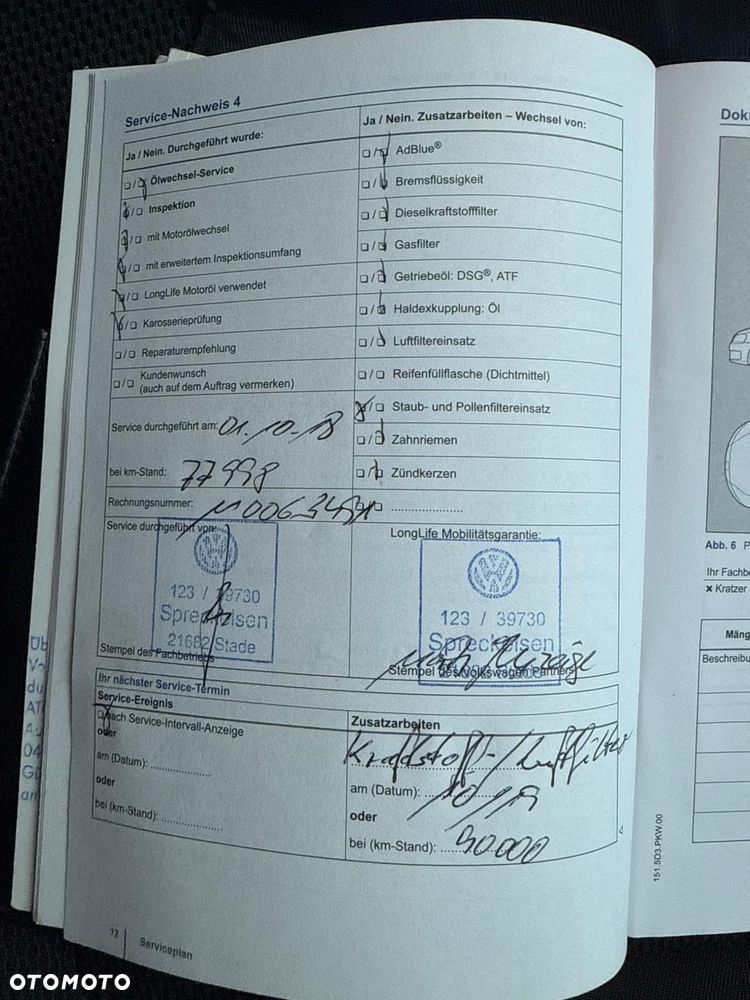 Service-Nachweis 4
Ja / Nein. Durchgeführt wurde:
Ölwechsel-Service
Inspektion
mit Motorölwechsel
mit erweitertem Inspektionsumfang
LongLife Motoröl verwendet
Karosserieprüfung
Reparaturempfehlung
Kundenwunsch
(auch auf dem Auftrag vermerken)
Ja / Nein. Zusatzarbeiten – Wechsel von:
AdBlue®
Bremsflüssigkeit
Dieselkraftstofffilter
Gasfilter
Getriebeöl: DSG®, ATF
Haldexkupplung: Öl
Luftfiltereinsatz
Reifenfüllflasche (Dichtmittel)
Staub- und Pollenfiltereinsatz
Zahnriemen
Zündkerzen
Service durchgeführt am: 01.10.18
bei km-Stand: 77998
Rechnungsnummer:
Service durchgeführt von:
123 / 39730
Spreckelsen
21682 Stade
Stempel des Fachbetriebs
LongLife Mobilitätsgarantie:
123 / 39730
Spreckelsen
Stempel des Volkswagen Partners
Ihr nächster Service-Termin
Service-Ereignis
nach Service-Intervall-Anzeige
oder
am (Datum):
oder
bei (km-Stand):
Zusatzarbeiten
Kraftstoff-/Luftfilter
am (Datum):
oder
bei (km-Stand): 90000
12 Serviceplan
4
151.5D3.PKW.00
Abb. 6
Ihr Fachbe
x Kratzer
Mäng
Beschreibu
Dok
OTOMOTO